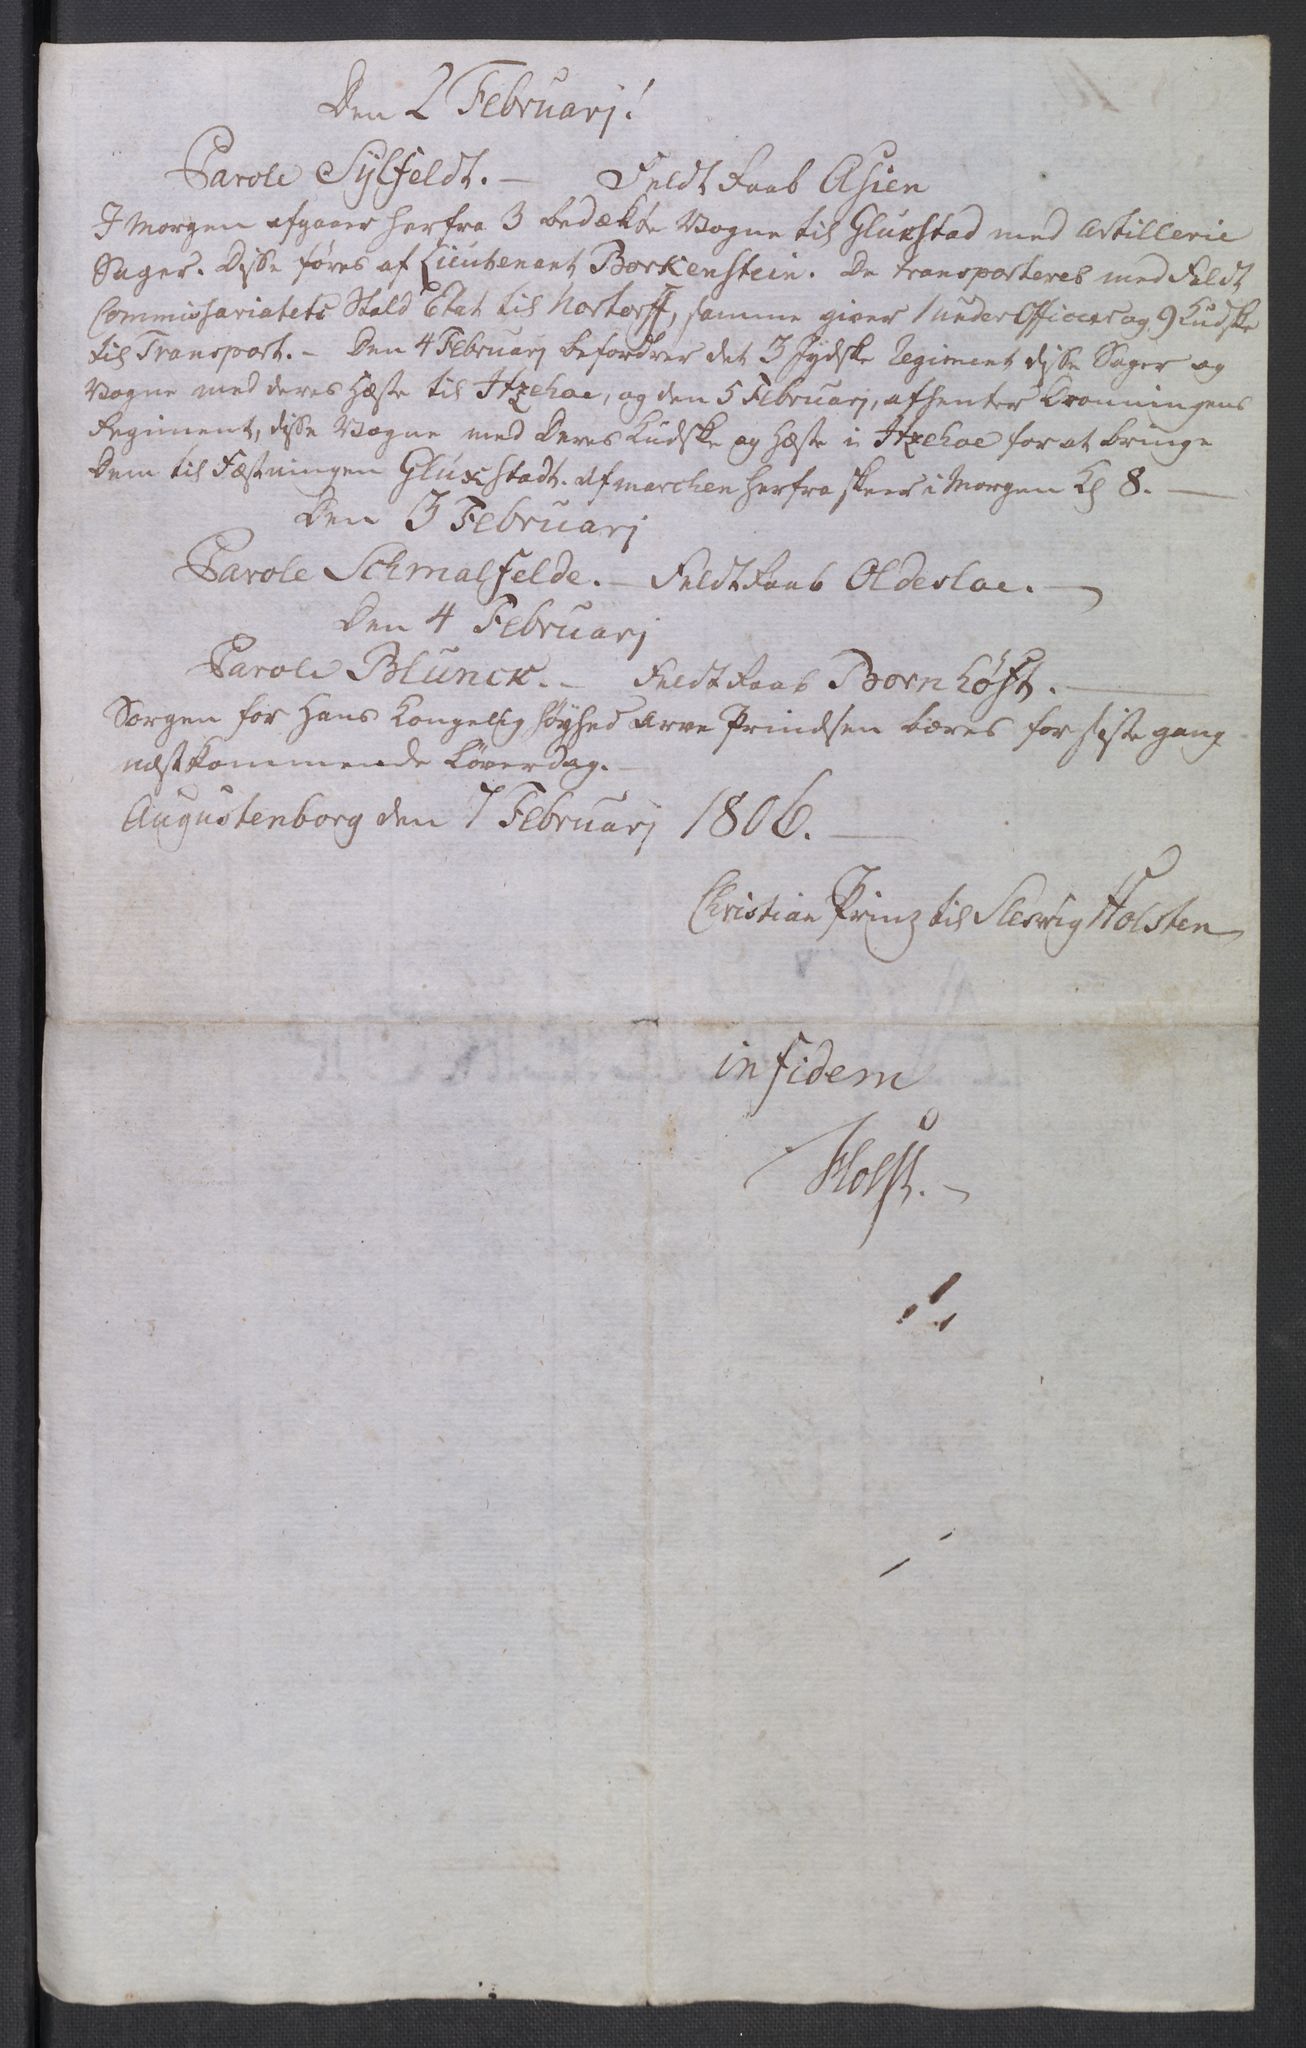 Den 2 Februarj!
Parole Sylfeldt. — Feldt Raab Asien
I Morgen afgaaer herfra 3 bedækte Vogne til Glukstad med Artillerie
Sager. Disse føres af Lieutenant Borkenstein. De transporteres med Feldt
Commissariatets Stald Etat til Nortorff, samme giver 1 under Officer og 9 Kudske
til Transport. — Den 4 Februarj befordrer det 3 Jydske Regiment disse Sager og
Vogne med deres Hæste til Itzehoe, og den 5 Februarj, afhenter Dronningens
Regiment, disse Vogne med deres Kudske og Hæste i Itzehoe for at bringe
dem til Fæstningen Glukstadt. Afmarchen herfra skeer i Morgen Kl 8. —
Den 3 Februarj
Parole Schmalfelde. — Feldt Raab Oldesloe. —
Den 4 Februarj
Parole Blunck. — Feldt Raab Bornhöft. —
Sorgen for Hans Kongelig Høyhed Arve Prindsen bæres for siste gang
næstkommende Løverdag. —
Augustenborg den 7 Februarj 1806. —
Christian Prinz til Slesvig Holsten
in fidem
Holst. —